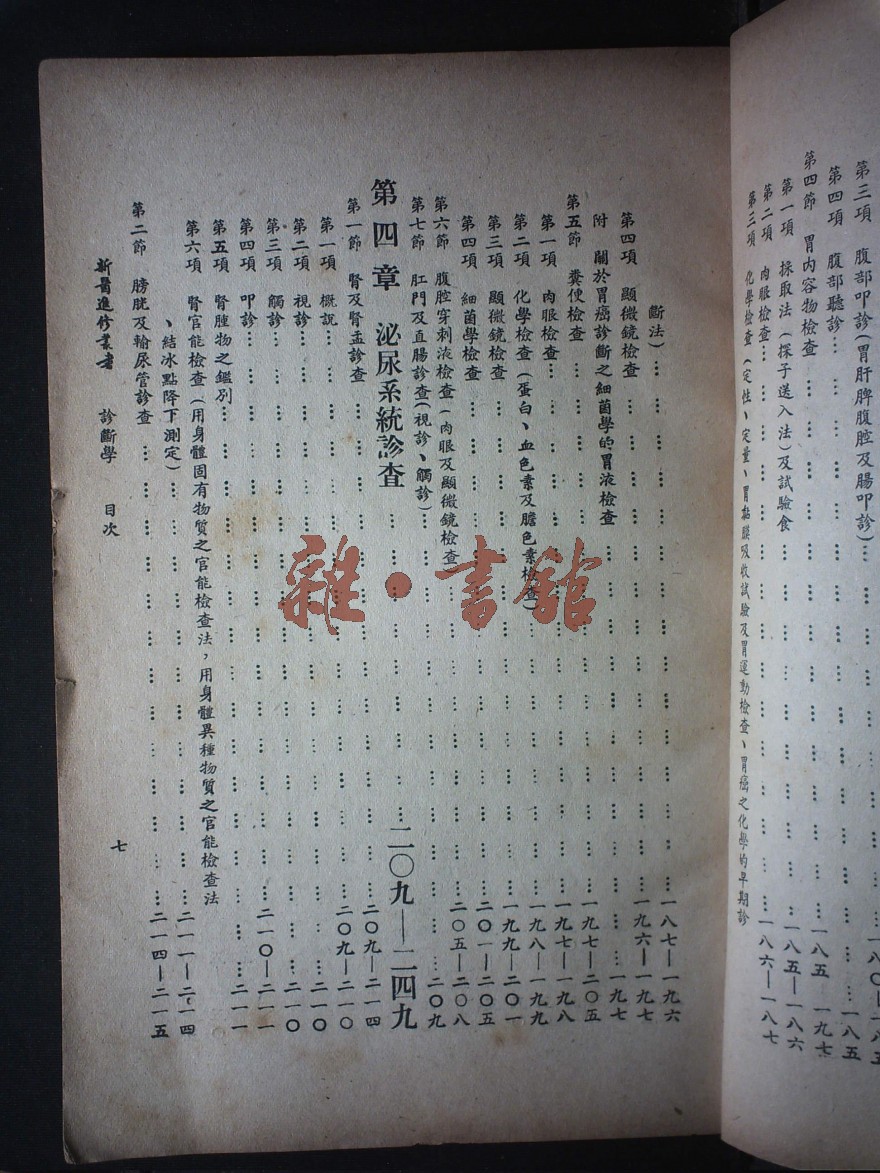 第三項 腹部叩診(胃肝脾腹腔及腸叩診)……一八〇—一八五
第四項 腹部聽診……一八五
第四節 胃內容物檢查……一八五—一九七
第一項 採取法(探子送入法)及試驗食……一八五—一八六
第二項 肉眼檢查……一八六—一八七
第三項 化學檢查(定性、定量、胃黏膜吸收試驗及胃運動檢查、胃癌之化學的早期診
斷法)……一八七—一九六
第四項 顯微鏡檢查……一九六—一九七
附 關於胃癌診斷之細菌學的胃液檢查……一九七
第五節 糞便檢查……一九七—二〇五
第一項 肉眼檢查……一九七—一九八
第二項 化學檢查(蛋白、血色素及膽色素檢查)……一九八—一九九
第三項 顯微鏡檢查……一九九—二〇一
第四項 細菌學檢查……二〇一—二〇五
第六節 腹腔穿刺液檢查(肉眼及顯微鏡檢查)……二〇五—二〇八
第七節 肛門及直腸診查(視診、觸診)……二〇九
第四章 泌尿系統診査……二〇九—二四九
第一節 腎及腎盂診查……二〇九—二一四
第一項 概說……二〇九—二一〇
第二項 視診……二一〇
第三項 觸診……二一〇
第四項 叩診……二一〇—二一一
第五項 腎腫物之鑑別……二一一
第六項 腎官能檢查(用身體固有物質之官能檢查法,用身體異種物質之官能檢查法
、結冰點降下測定)……二一一—二一四
第二節 膀胱及輸尿管診查……二一四—二一五
新醫進修叢書 診斷學 目次 七
雜·書館